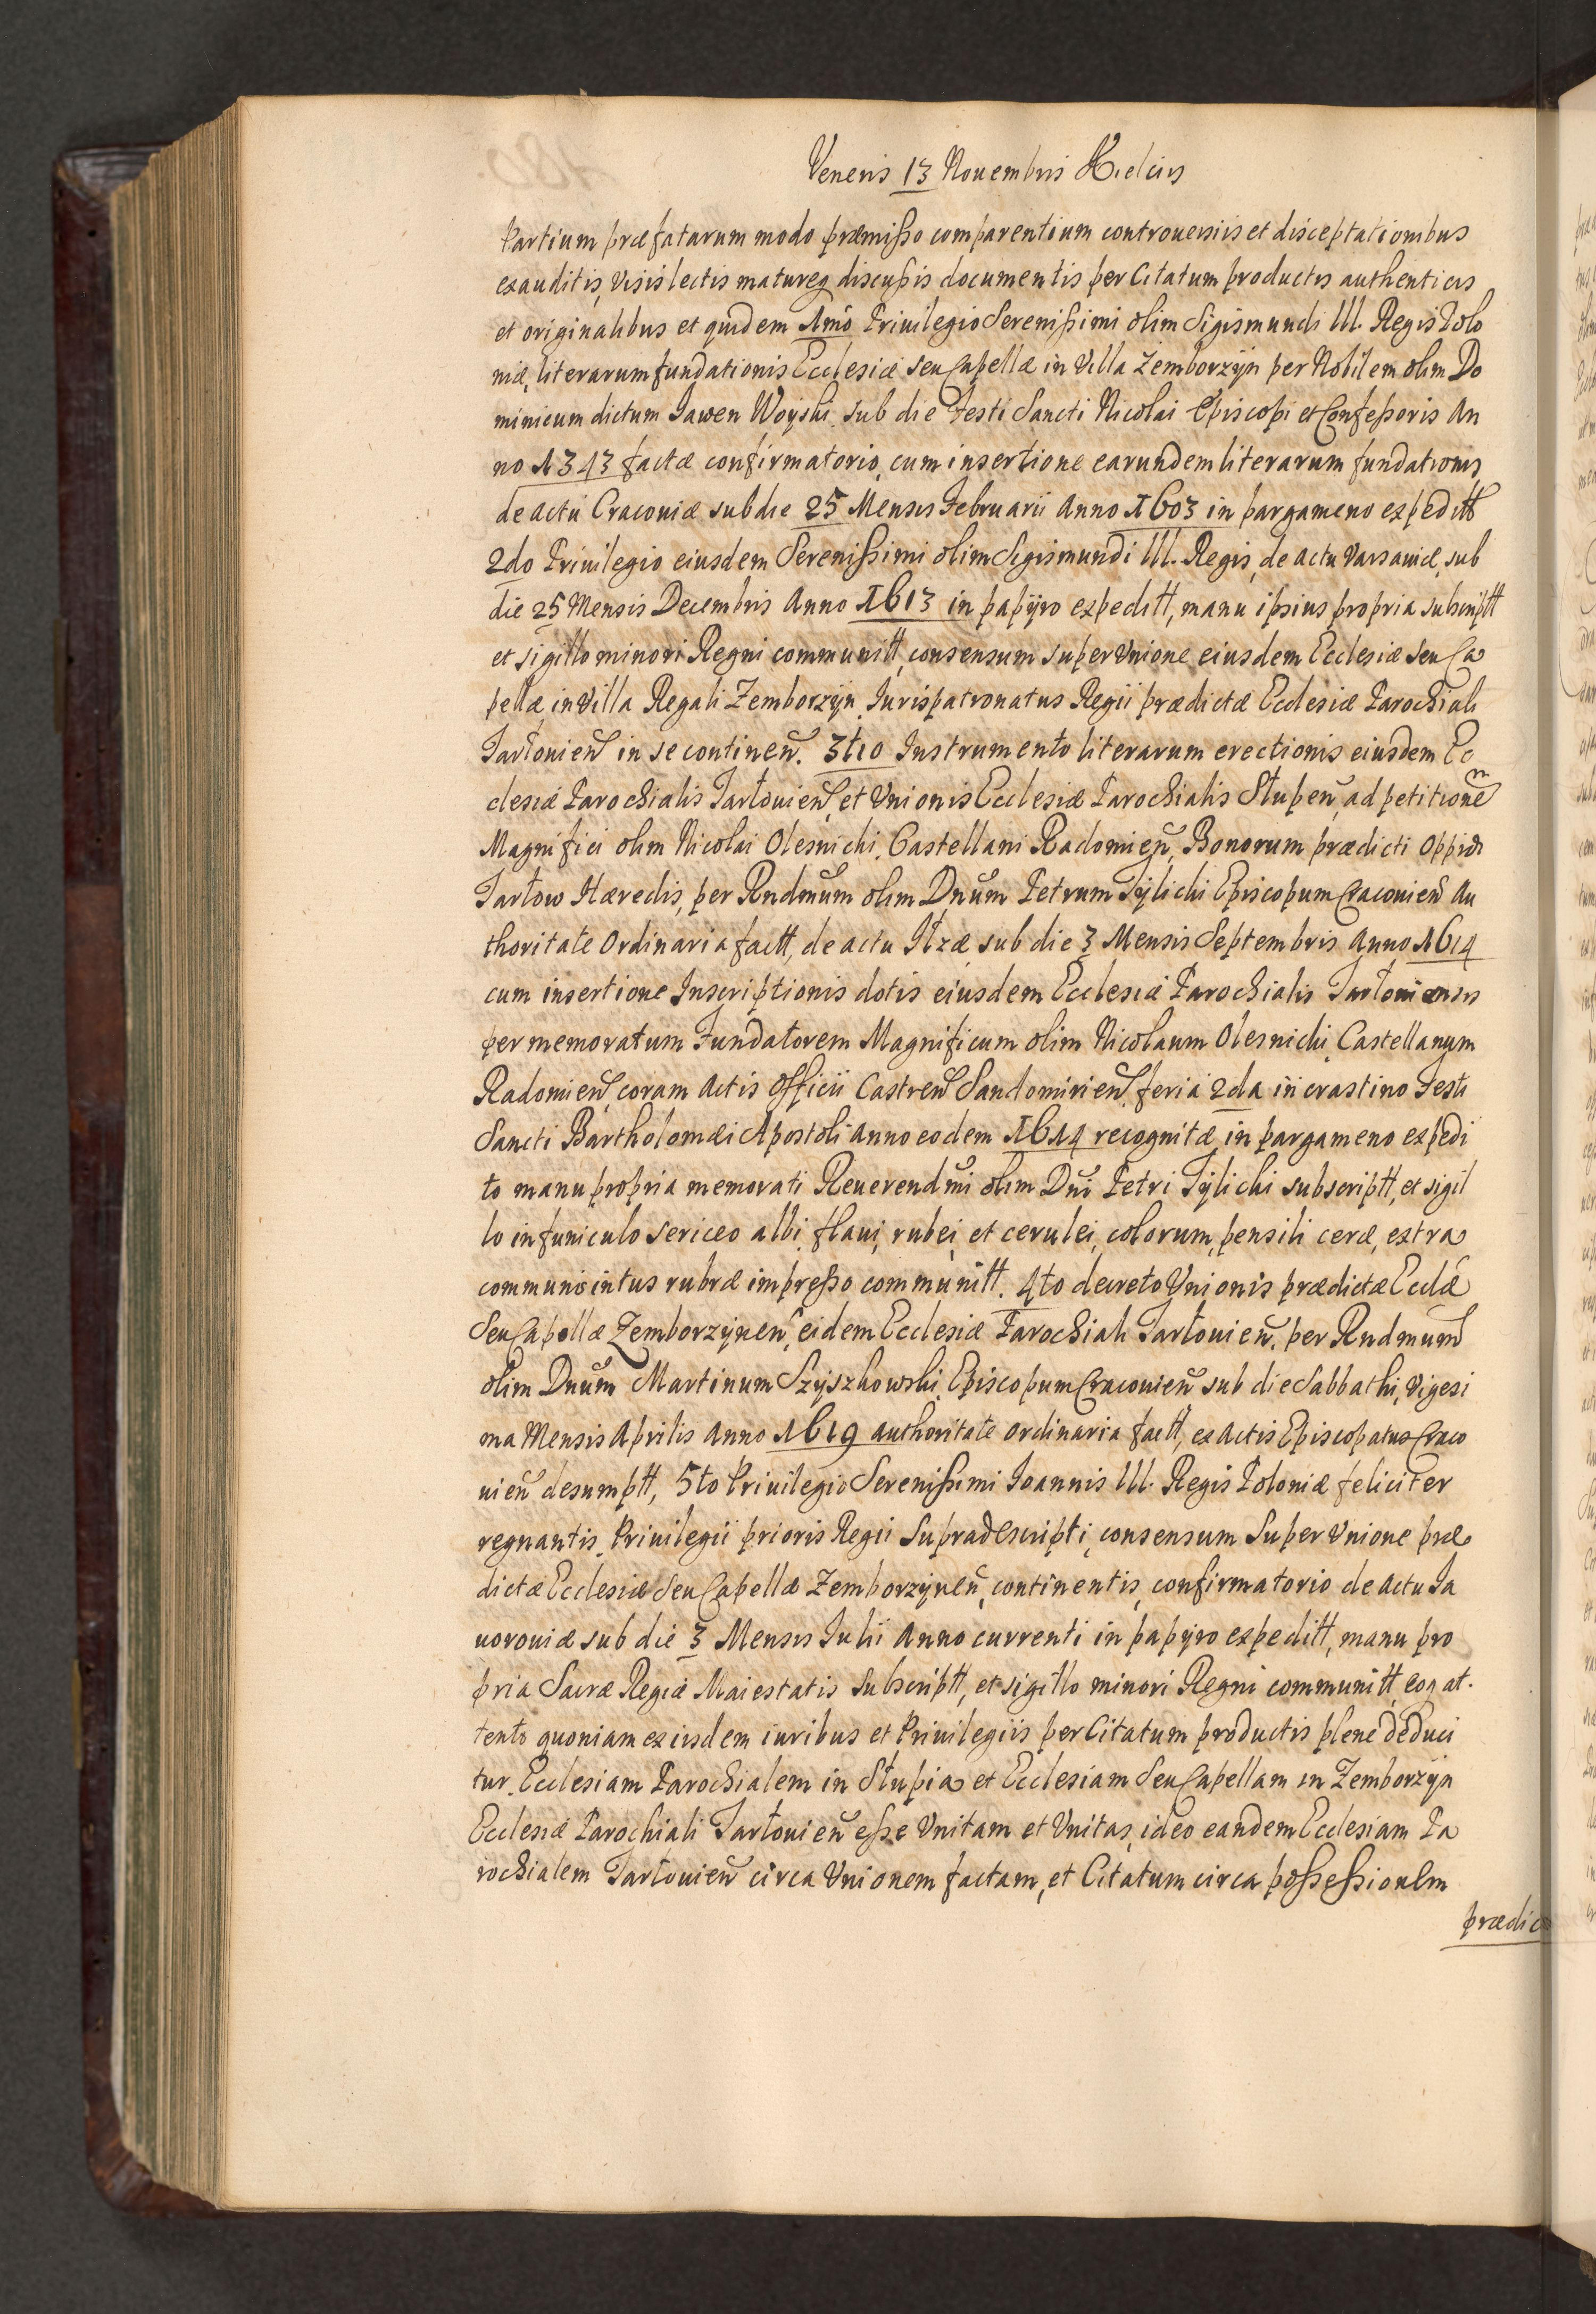 Veneris 13 Nouembris Kielciis
Partium præfatarum modo præmisso comparentium controuersiis et disceptationibus
exauditis, visis lectis matureq discussis documentis per Citatum productis authenticis
et originalibus et quidem 1mo Priuilegio Serenissimi olim Sigismundi III. Regis Polo
niæ, literarum fundationis Ecclesiæ seu Capellæ in Villa Zemborzÿn per Nobilem olim Do
minicum dictum Jawen Woÿski, sub die Festi Sancti Nicolai Episcopi et Confessoris An
no 1343 factæ confirmatorio, cum insertione earundem literarum fundationis,
de actu Cracouiæ sub die 25 Mensis Februarii Anno 1603 in pargameno expeditt
2do Priuilegio eiusdem Serenissimi olim Sigismundi III. Regis, de actu Varsauiæ, sub
die 25 Mensis Decembris Anno 1613 in papÿro expeditt, manu ipsius propria subscriptt
et sigillo minori Regni communitt, consensum super Vnione eiusdem Ecclesiæ seu Ca
pellæ in Villa Regali Zemborzÿn Jurispatronatus Regii prædictæ Ecclesiæ Parochiali
Tarłouien̄ in se continen̄. 3tio Instrumento literarum erectionis eiusdem Ec
clesiæ Parochialis Tarłouien̄, et Vnionis Ecclesiæ Parochialis Słupen̄, ad petitionem
Magnifici olim Nicolai Olesnicki, Castellani Radomien̄, Bonorum prædicti Oppidi
Tarłow Hæredis, per Rndmūm olim Dnūm Petrum Tÿlicki Episcopum Cracouien̄ Au
thoritate Ordinaria factt, de actu Iłzæ sub die 3 Mensis Septembris Anno 1614
cum insertione Inscriptionis dotis eiusdem Ecclesiæ Parochialis Tarłouiensis
per memoratum Fundatorem Magnificum olim Nicolaum Olesnicki Castellanum
Radomien̄, coram Actis Officii Castren̄ Sandomirien̄, feria 2da in crastino Festi
Sancti Bartholomæi Apostoli Anno eodem 1614 recognitæ in pargameno expedi
to manu propria memorati Reuerendm̄i olim Dn̄i Petri Tÿlicki subscriptt, et sigil
lo in funiculo sericeo albi, flaui, rubei, et cerulei, colorum, pensili ceræ, extra
communis intus rubræ impresso communitt. 4to decreto Vnionis prædictæ Ecclæ
Seu Capellæ Zemborzÿnen̄, eidem Ecclesiæ Parochiali Tarłouien̄, per Rndmum
olim Dnūm Martinum Szÿszkowski Episcopum Cracouien̄ sub die Sabbathi, Vigesi
ma Mensis Aprilis Anno 1619 authoritate ordinaria factt, ex Actis Episcopatus Craco
uien̄ desumptt, 5to Priuilegio Serenissimi Ioannis III. Regis Poloniæ feliciter
regnantis, Priuilegii prioris Regii Supradescripti, consensum Super Vnione præ
dictæ Ecclesiæ Seu Capellæ Zemborzÿnen̄, continentis, confirmatorio de actu Ja
uorouiæ sub die 3 Mensis Iulii Anno currenti in papÿro expeditt, manu pro
pria Sacræ Regiæ Maiestatis Subscriptt, et sigillo minori Regni communitt, eoq at.
tento quoniam ex iisdem iuribus et Priuilegiis per Citatum productis plene deduci
tur, Ecclesiam Parochialem in Słupia et Ecclesiam Seu Capellam in Zemborzÿn
Ecclesiæ Parochiali Tarłouien̄ esse Vnitam et Vnitas, ideo eandem Ecclesiam Pa
rochialem Tarłouien̄ circa Vnionem factam, et Citatum circa possessionem
prædic